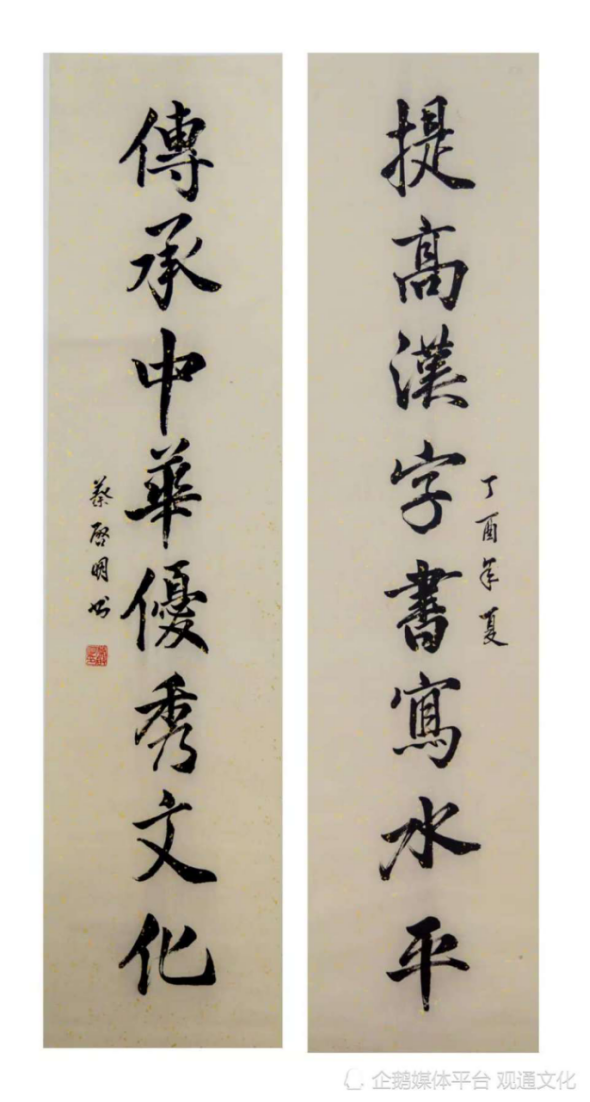 丁酉年夏
提高漢字書寫水平
傳承中華優秀文化
蔡啓明书
企鹅媒体平台 观通文化